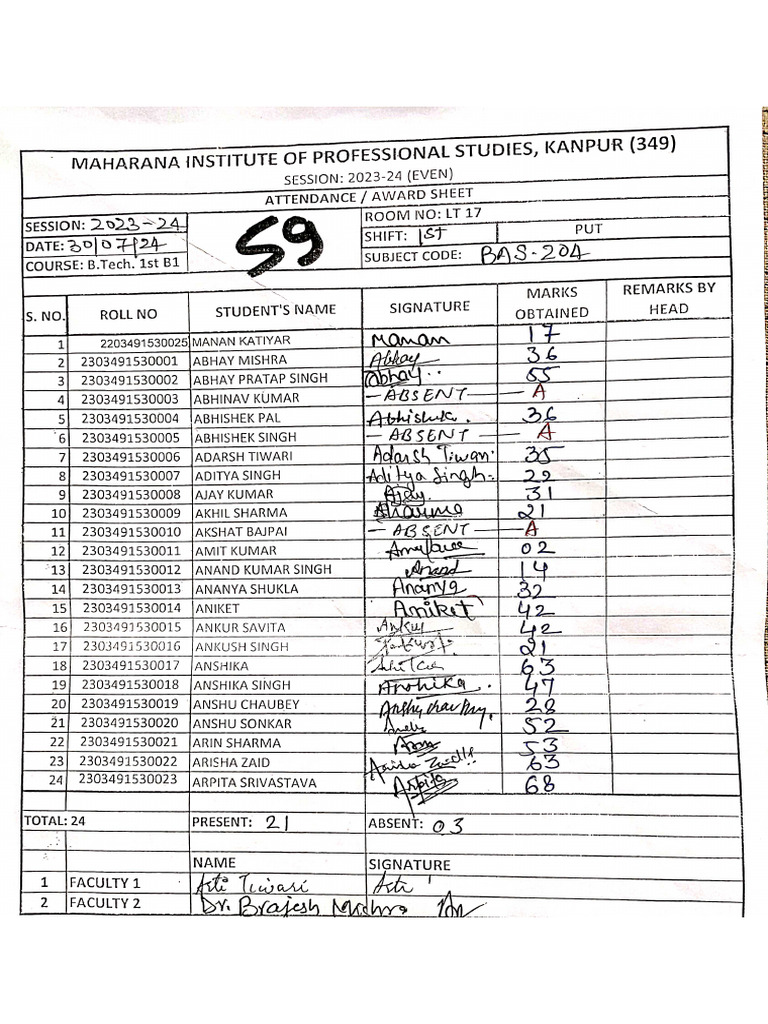 MAHARANA INSTITUTE OF PROFESSIONAL STUDIES, KANPUR (349)
SESSION: 2023-24 (EVEN)
ATTENDANCE / AWARD SHEET
SESSION: 2023-24 59 ROOM NO: LT 17
DATE: 30/07/24 SHIFT: 1ST PUT
COURSE: B.Tech. 1st B1 SUBJECT CODE: BAS-204
S. NO. ROLL NO STUDENT'S NAME SIGNATURE MARKS OBTAINED REMARKS BY HEAD
1 2203491530025 MANAN KATIYAR Manan 17
2 2303491530001 ABHAY MISHRA Abhay 36
3 2303491530002 ABHAY PRATAP SINGH Abhay 55
4 2303491530003 ABHINAV KUMAR - ABSENT - A
5 2303491530004 ABHISHEK PAL Abhishek. 36
6 2303491530005 ABHISHEK SINGH - ABSENT - A
7 2303491530006 ADARSH TIWARI Adarsh Tiwari 35
8 2303491530007 ADITYA SINGH Aditya Singh. 22
9 2303491530008 AJAY KUMAR Ajay 31
10 2303491530009 AKHIL SHARMA Sharma 21
11 2303491530010 AKSHAT BAJPAI - ABSENT - A
12 2303491530011 AMIT KUMAR 02
13 2303491530012 ANAND KUMAR SINGH Anand 14
14 2303491530013 ANANYA SHUKLA Ananya 32
15 2303491530014 ANIKET Aniket 42
16 2303491530015 ANKUR SAVITA Ankur 42
17 2303491530016 ANKUSH SINGH 21
18 2303491530017 ANSHIKA 63
19 2303491530018 ANSHIKA SINGH Anshika. 47
20 2303491530019 ANSHU CHAUBEY Anshu chaubey. 28
21 2303491530020 ANSHU SONKAR 52
22 2303491530021 ARIN SHARMA 53
23 2303491530022 ARISHA ZAID Arisha Zaid 63
24 2303491530023 ARPITA SRIVASTAVA Arpita 68
TOTAL: 24 PRESENT: 21 ABSENT: 03
NAME SIGNATURE
1 FACULTY 1 Arti Tiwari Arti
2 FACULTY 2 Dr. Brajesh Mishra